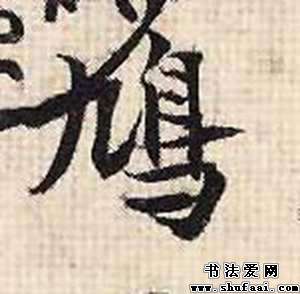 鸠
书法爱网
www.shufaai.com